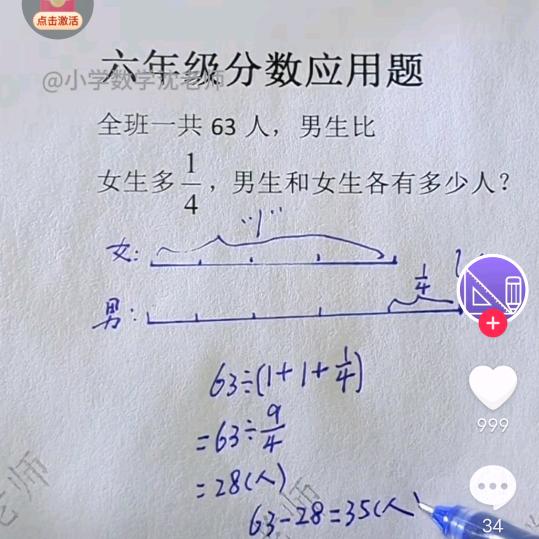 点击激活
六年级分数应用题
@小学数学沈老师
全班一共 63 人，男生比
女生多 1/4，男生和女生各有多少人？
"1"
女:
1/4
男:
63÷(1+1+1/4)
=63÷9/4
=28(人)
63-28=35(人)
999
34